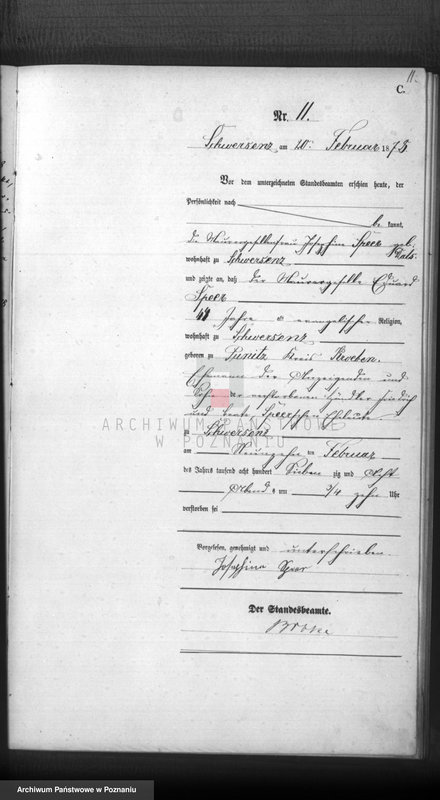 11.
C.
Nr. 11.
Schwersenz am 20. Februar 1878
Vor dem unterzeichneten Standesbeamten erschien heute, der
Persönlichkeit nach
be kannt,
die Maurergesellenfrau Josephine Speer geb.
wohnhaft zu Schwersenz
und zeigte an, daß der Maurergeselle Eduard
Speer
41 Jahre evangelischer Religion,
wohnhaft zu Schwersenz
geboren zu Punitz Kreis Kroeben,
Ehemann der Anzeigenden und
Sohn der verstorbenen Händler
und Speerschen Eheleute
zu Schwersenz
am Neunzehn ten Februar
des Jahrs tausend acht hundert Sieben zig und Acht
Abend s um 3/4 zehn Uhr
verstorben sei
Vorgelesen, genehmigt und unterschrieben
Josephina Speer
Der Standesbeamte.
ARCHIWUM PAŃSTWOWE
W POZNANIU
Archiwum Państwowe w Poznaniu